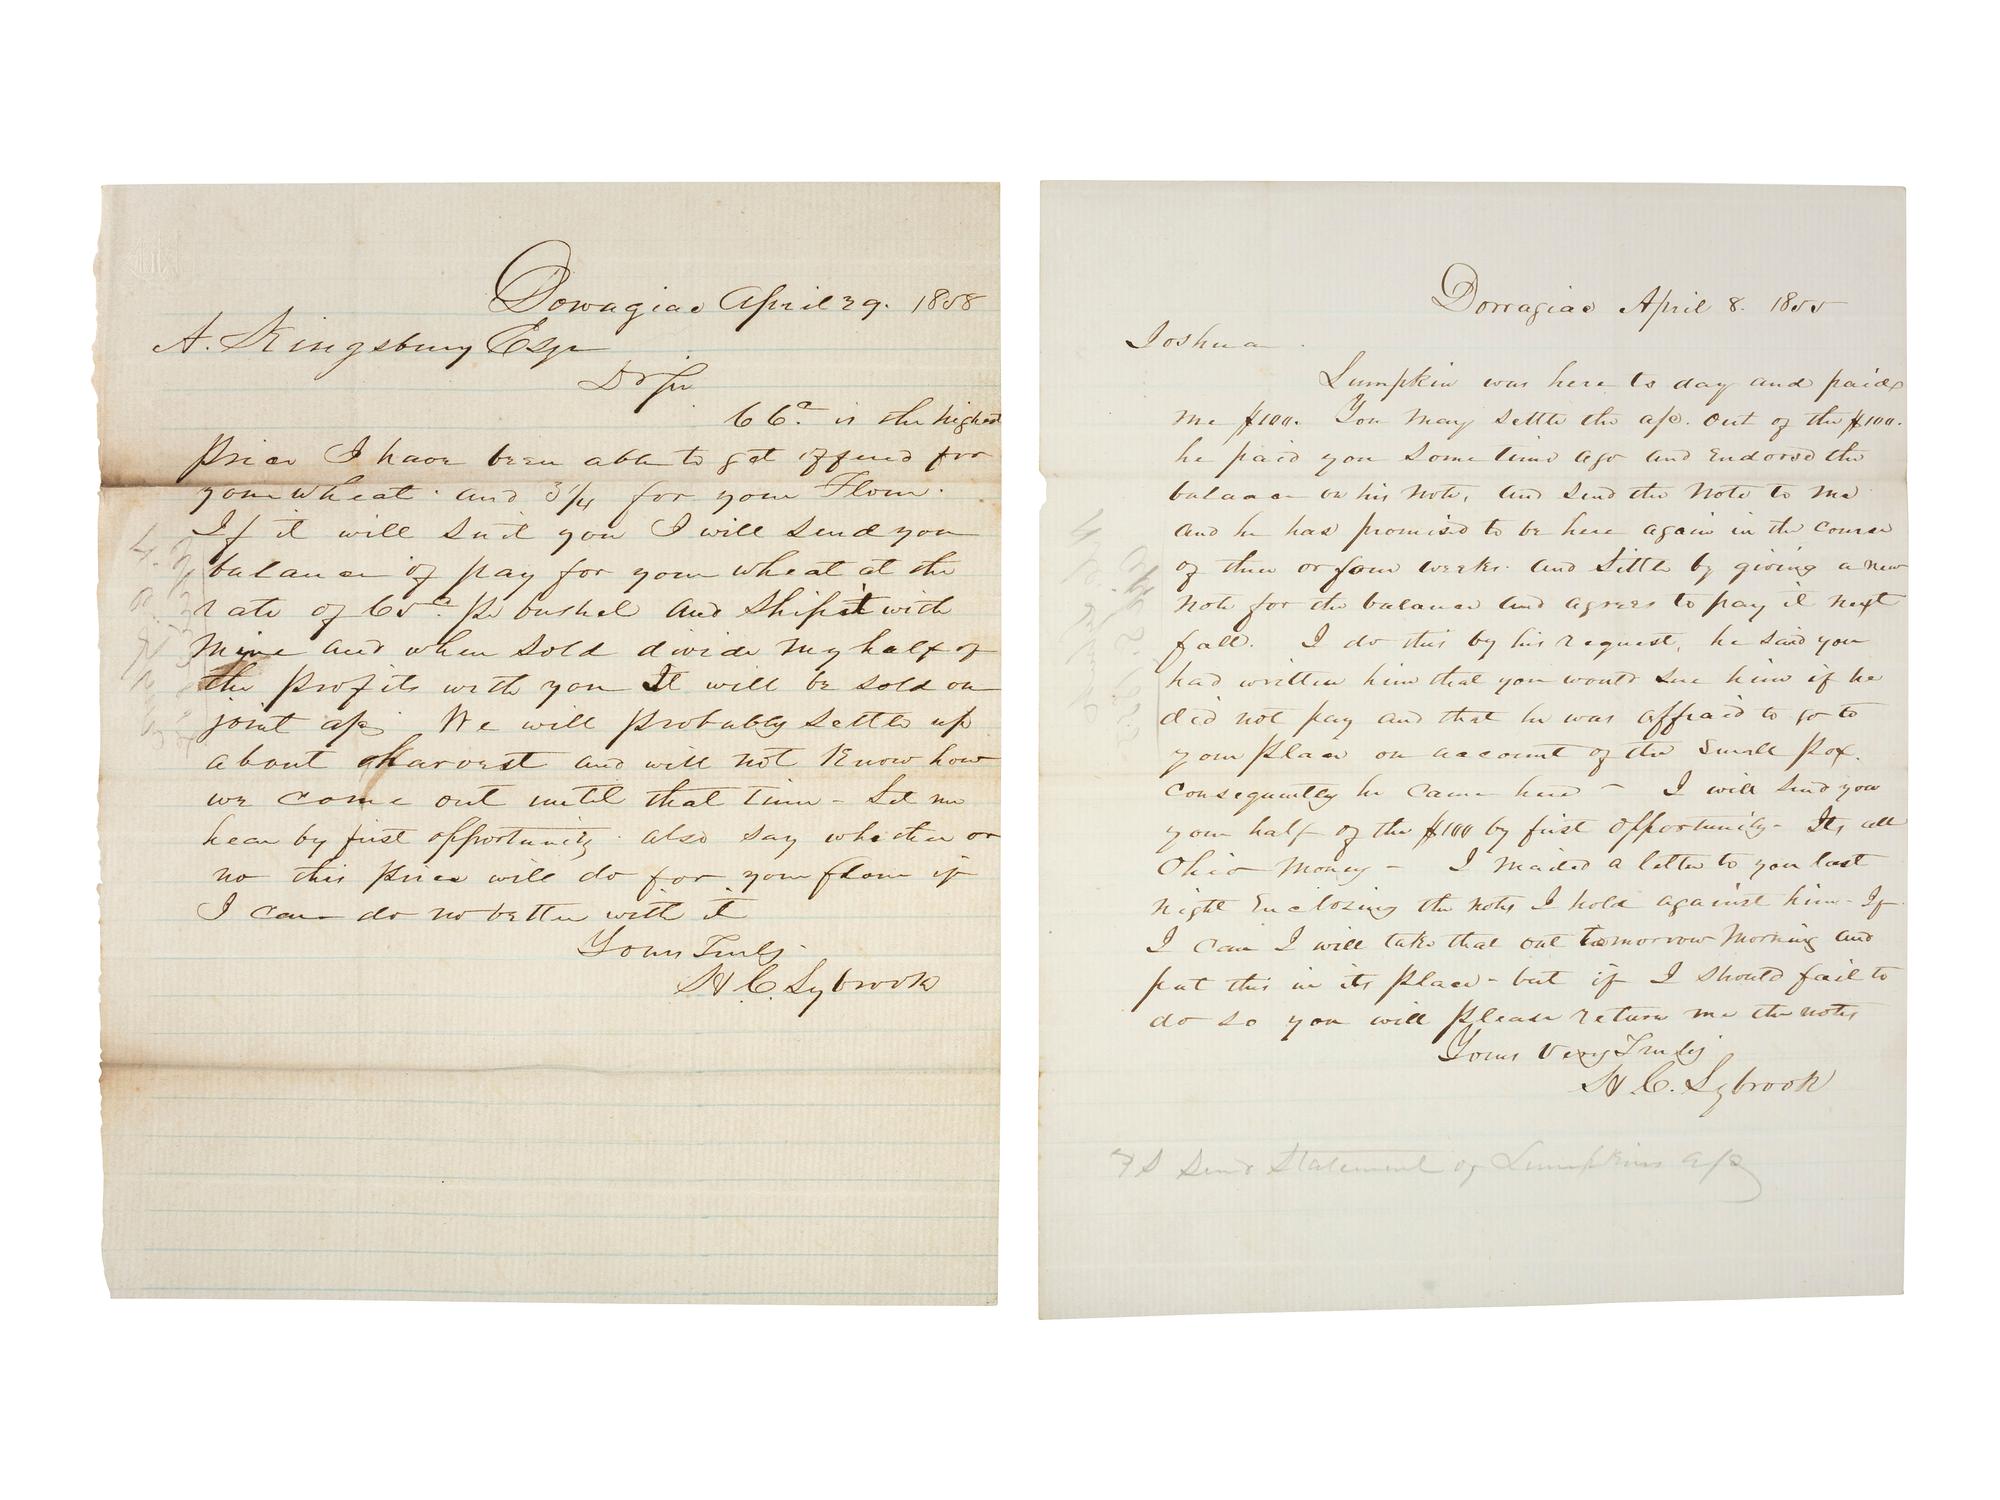 Dowagiac April 29. 1858
A. Kingsbury Esqr
Dr Sir
66c. is the highest
price I have been able to get offered for
your wheat. and 3¼ for your Flour.
If it will suit you I will send you
balance of pay for your wheat at the
rate of 65c. pr bushel and ship it with
mine and when sold divide my half of
the profits with you It will be sold on
joint a/c. We will probably settle up
about harvest and will not know how
we come out until that time - Let me
hear by first opportunity. also say whether or
no this price will do for your flour if
I can do no better with it
Yours Truly.
H. C. Lybrook
Dowagiac April 8. 1855
Joshua.
Lumpkin was here to day and paid
me $100. You may settle the a/c. out of the $100.
he paid you some time ago and Endorse the
balance on his note, and send the note to me
and he has promised to be here again in the course
of three or four weeks. and settle by giving a new
note for the balance and agrees to pay it next
fall. I do this by his request, he said you
had written him that you would sue him if he
did not pay and that he was affraid to go to
your place on account of the small pox.
Consequently he came here - I will send you
your half of the $100 by first opportunity - Its all
Ohio money - I mailed a letter to you last
night Enclosing the notes I hold against him - If
I can I will take that out tomorrow morning and
put this in its place - but if I should fail to
do so you will please return me the notes
Yours Very Truly
H. C. Lybrook
PS Send Statement of Lumpkins a/c